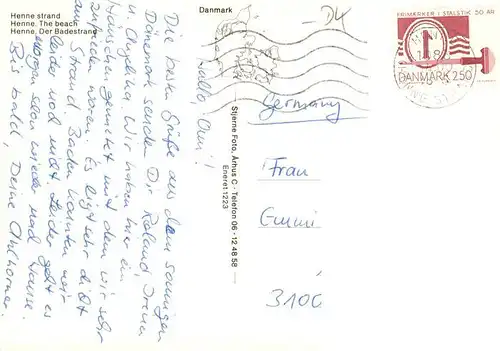 Henne strand
Henne. The beach
Henne. Der Badestrand
Danmark
Hallo, Omi!
Die besten Grüße aus dem sonnigen
Dänemark senden Dir Roland,
u. Angelika. Wir haben hier ein
Häuschen gemietet mit dem wir sehr
zufrieden waren. Es liegt sehr dicht
am Strand. Baden konnten wir
leider noch nicht. Leider geht es
morgen schon wieder nach Hause.
Bis bald, Deine
Stjerne Foto, Århus C - Telefon 06 - 12 48 58
Eneret 11223
FRIMÆRKER I STÅLSTIK 50 ÅR
DANMARK 250
Germany
Frau
3100